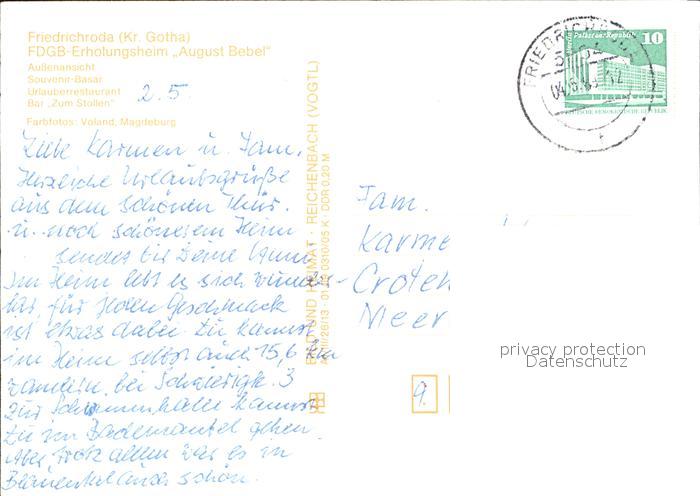 Friedrichroda (Kr. Gotha)
FDGB-Erholungsheim „August Bebel"
Außenansicht
Souvenir-Basar
Urlauberrestaurant
Bar „Zum Stollen"
2.5.
Farbfotos: Voland, Magdeburg
Liebe Karmen u. Fam.
Herzliche Urlaubsgrüße
aus dem schönen Thür.
u. noch schönerem Heim
sendet dir Deine
Im Heim lebt es sich wunder-
bar, für jeden Geschmack
ist etwas dabei. Du kannst
im Heim selbst auch 15,6 km
wandern, bei Schwierigk. 3
Zur Schwimmhalle kannst
du im Bademantel gehen
Aber trotz allem war es in
schön.
BILD UND HEIMAT · REICHENBACH (VOGTL)
DDR 0,20 M
Fam.
Karme
Meer
9.
FRIEDRICHRODA
10
Berlin Palast der Republik
DEUTSCHE DEMOKRATISCHE REPUBLIK
privacy protection
Datenschutz